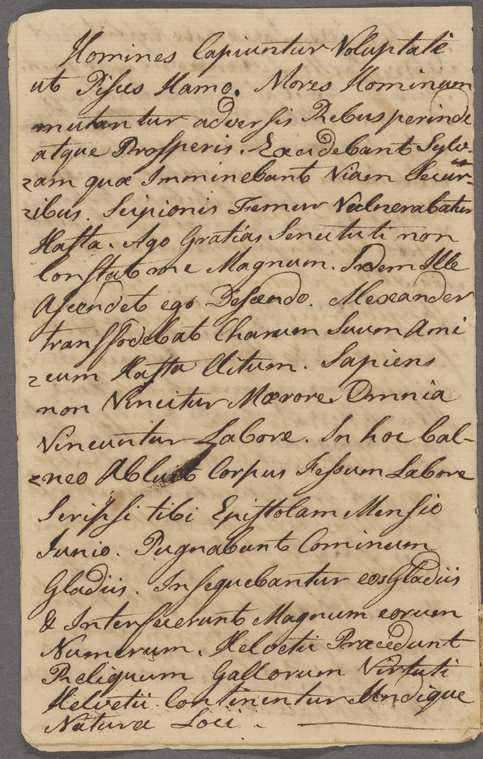 Homines Capiuntur Voluptate
ut Pisces Hamo. Mores Hominum
mutantur adversis Rebus perinde
atque Prosperis. Excidebant Sylv-
=am quæ Imminebant Viam Secur-
=ibus. Scipionis Femur Vulnerabatur
Hasta. Ago Gratias Senectuti non
Constat me Magnum. Idem Ille
Ascendet ego Descendo. Alexander
transfodebat Charum Suum Ami
=cum Hasta Clitum. Sapiens
non Vincitur Mœrore Omnia
Vincuntur Labore. In hoc Bal-
=neo Abluit Corpus Fessum Labore
Scripsi tibi Epistolam Mensio
Junio. Pugnabant Cominum
Gladiis. Insequebantur eos Gladiis
& Interfecerunt Magnum eorum
Numerum. Helvetii Præcedunt
Reliquum Gallorum Virtuti
Helvetii Continentur Undique
Natura Loci.